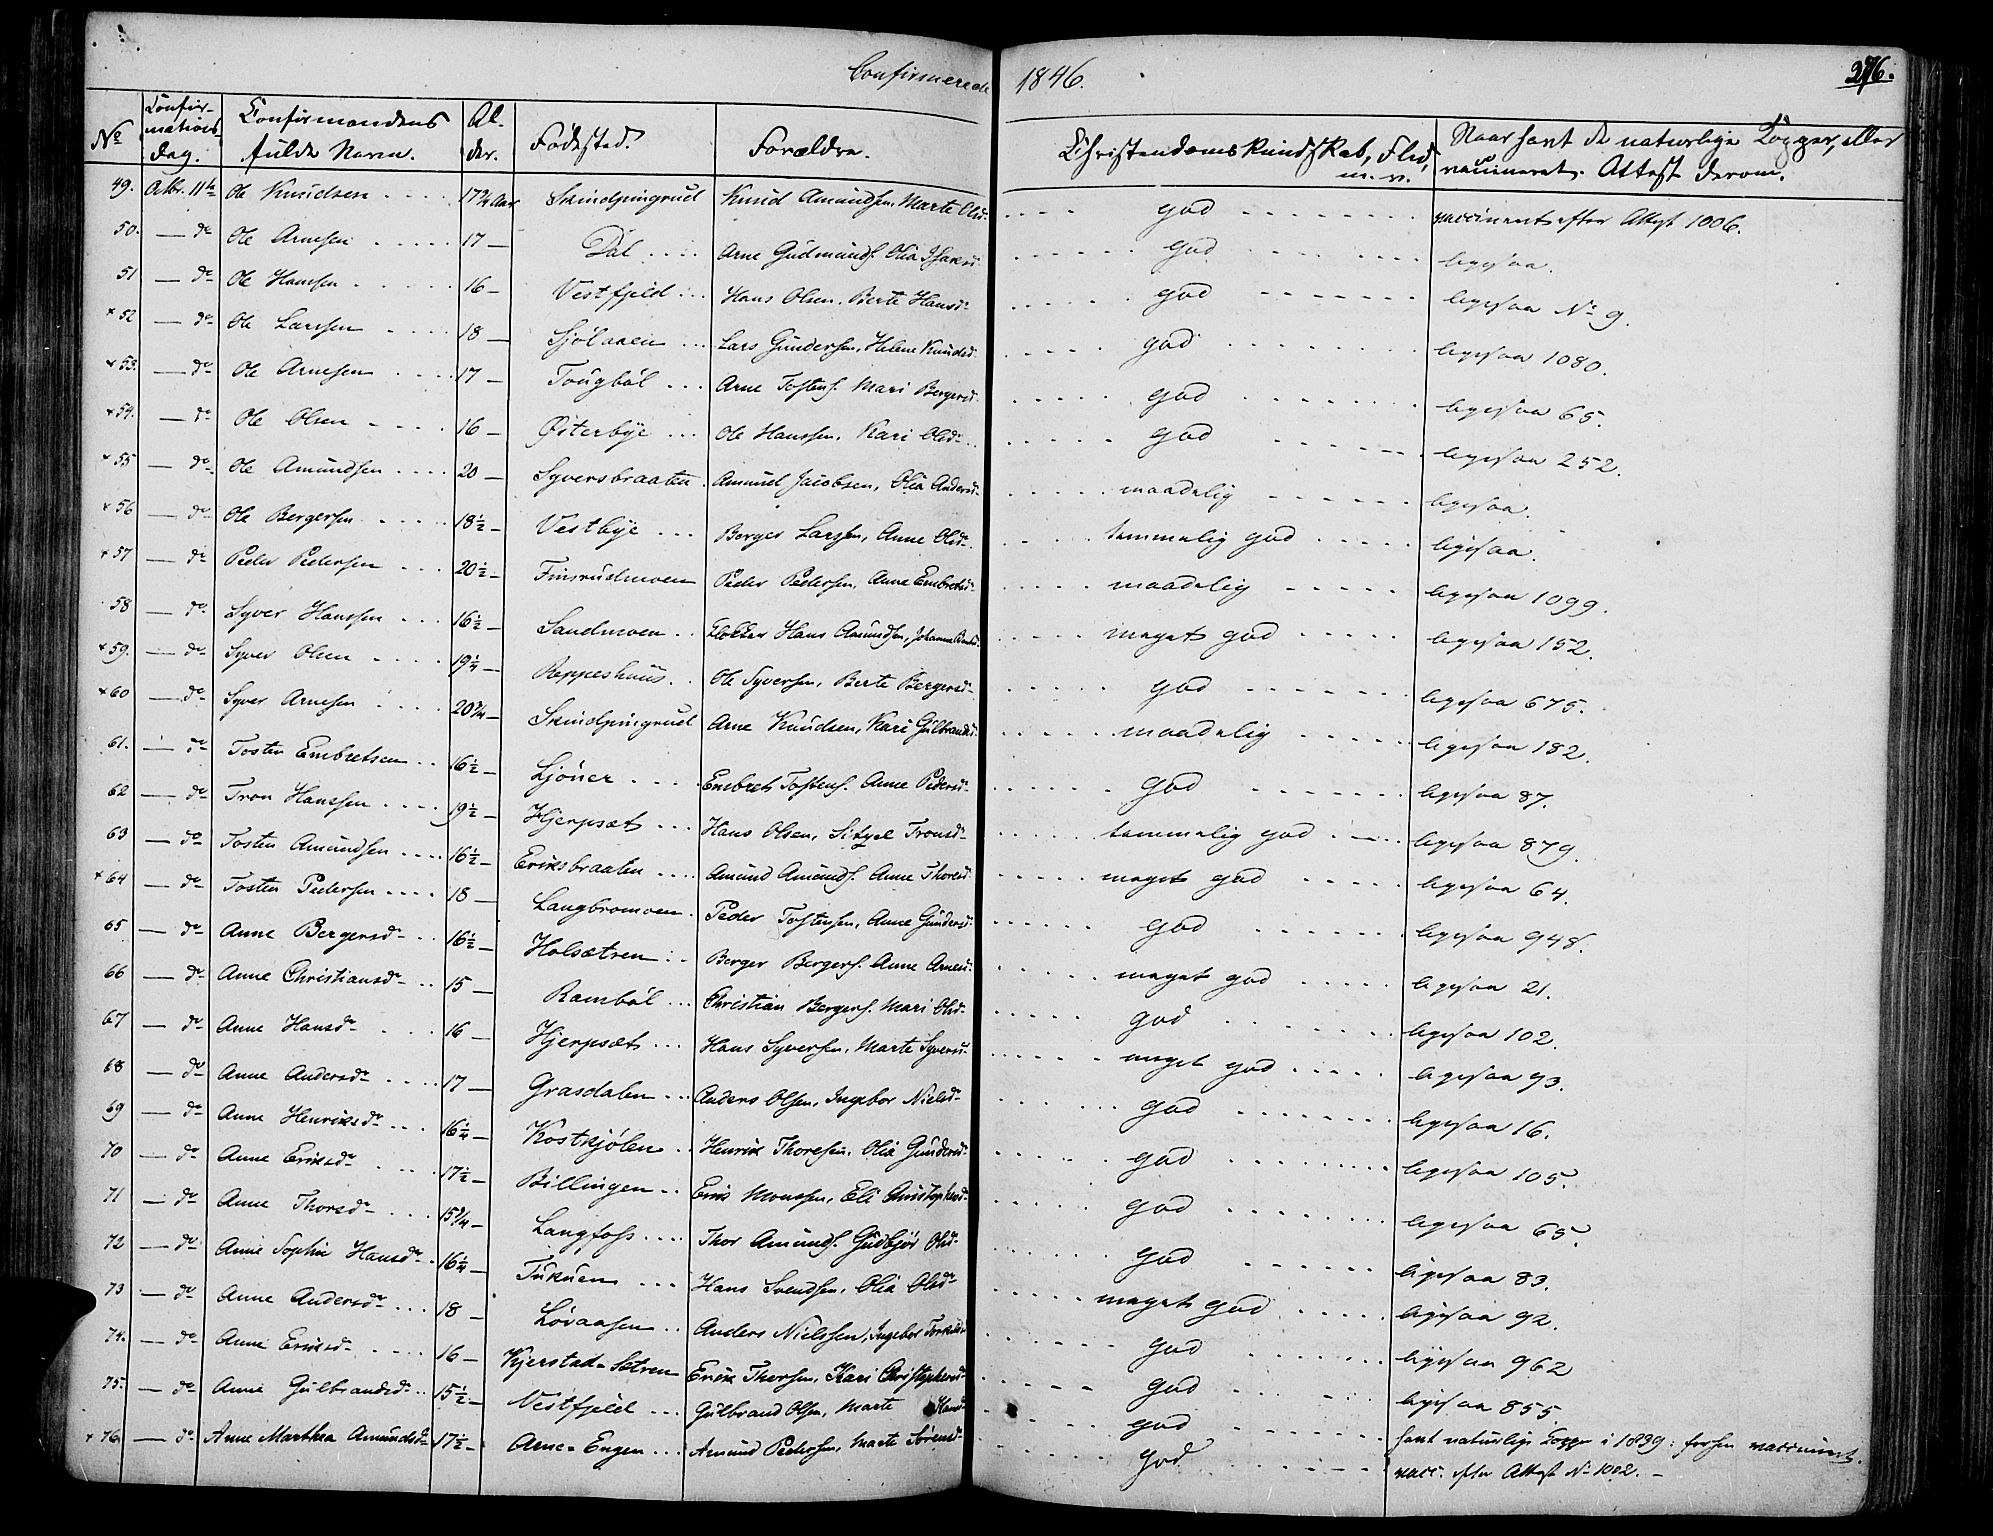 Confirmerede 1846. 276.
No Confirmations Dag. Confirmandens fulde Navn. Alder. Fødested. Forældre. Christendoms Kundskab, Flid, m. v. Naar havt de naturlige Kopper, eller vaccineret. Attest derom.
49. Oktr. 11te Ole Knudsen 17 3/4 Aar Skindpingrud Knud Amundsen, Marte Olsd. god vaccineret efter Attest 1006.
50. — do Ole Arnesen 17 — Dal Arne Gudmunds. Olia god ligesaa.
51 — do Ole Hansen 16 — Vestfjeld Hans Olsen, Berte Hansd. god ligesaa No 9.
× 52 — do Ole Larssen 18 — Sjölaaen Lars Gundersen, Helene Knudsd. god ligesaa 1080.
× 53. — do Ole Arnesen 17 — Tougböl Arne Tostens. Mari Bergersd. god ligesaa 65.
× 54. — do Ole Olsen 16 — Østerbye Ole Hanssen, Kari Olsd. god ligesaa 252.
× 55 — do Ole Amundsen 20 — Syversbraaten Amund Jacobsen, Olia Andersd. maadelig ligesaa.
× 56 — do Ole Bergersen 18 1/2 — Vestbye Berger Larssen, Anne Olsd. temmelig god ligesaa.
× 57 — do Peder Pedersen 20 1/2 — Finsrudmoen Peder Pedersen, Anne Embretsd. maadelig ligesaa 1099.
58 — do Syver Hanssen 16 1/2 — Sandmoen Klokker Hans Amundsen, Johanne meget god ligesaa 152.
× 59. — do Syver Olsen 19 1/4 — Reppeshuus Ole Syversen, Berte Bergersd. god ligesaa 675.
× 60 — do Syver Arnesen 20 3/4 — Skindpingrud Arne Knudsen, Kari Gulbrandsd. maadelig ligesaa 182.
61. — do Tosten Embretsen 16 1/2 — Ljöner Embret Tostens. Anne Pedersd. god ligesaa 87.
62 — do Tron Hanssen 19 1/2 — Hjerpsæt Hans Olsen, Sitzel Tronsd. temmelig god ligesaa 879.
63 — do Tosten Amundsen 16 1/2 — Eriksbraaten Amund Amunds. Anne Thoresd. meget god ligesaa 64.
× 64 — do Tosten Pedersen 18 — Langbromoen Peder Tostensen, Anne Gundersd. god ligesaa 948.
65 — do Anne Bergersd. 16 1/2 — Holsætren Berger Bergers. Anne Arnesd. meget god ligesaa 21.
66 — do Anne Christiansd. 15 — Ramböl Christian Bergers. Mari Olsd. god ligesaa 102.
67 — do Anne Hansd. 16 — Hjerpsæt Hans Syversen, Marte Syversd. meget god ligesaa 93.
68 — do Anne Andersd. 17 — Grasdalen Anders Olsen, Ingebor Nielsd. god ligesaa 16.
69 — do Anne Henriksd. 16 1/4 — Kostkjölen Henrik Thoresen, Olia Gundersd. god ligesaa 105.
70 — do Anne Eriksd. 17 1/2 — Billingen Erik Monssen, Eli Christophersd. god ligesaa 65.
71 — do Anne Thorsd. 15 3/4 — Langfoss Thor Amunds. Gudbjör Olsd. god ligesaa 83.
72 — do Anne Sophie Hansd. 16 1/4 — Tukuen Hans Svendsen, Olia Olsd. meget god ligesaa 92.
73 — do Anne Andersd. 18 — Lövaasen Anders Nielssen, Ingebor god ligesaa 962
74. — do Anne Eriksd. 16 — Kjerstad-Sætren Erik Thorsen, Kari Christophersd. god ligesaa 855
75. — do Anne Gulbrandsd. 15 1/2 — Vestfjeld Gulbrand Olsen, Marte Hansd. god havt naturlige Kopper i 1839: forhen vaccineret.
× 76. — do Anne Marthea Amundsd. 17 1/2 — Arne-Engen Amund Pedersen, Marte Sörensd. god vacc. efter Attest No 1002. —